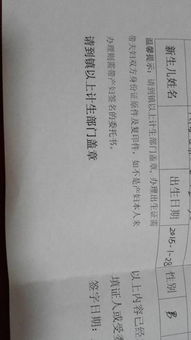 新生儿姓名
出生日期
2015-1-28
性别
男
温馨提示：请到镇以上计生部门盖章，办理出生证需
带夫妇双方身份证原件及复印件，如不是产妇本人来
办理则需带产妇签名的委托书。
请到镇以上计生部门盖章
以上内容已经
填证人或受
签字日期：